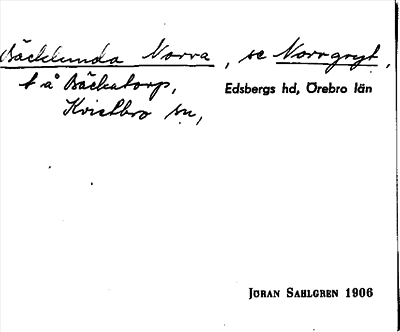 Bäcklunda Norra, se Norrgryt,
t å Bäckatorp, Edsbergs hd, Örebro län
Kvistbro sn,
JÖRAN SAHLGREN 1906